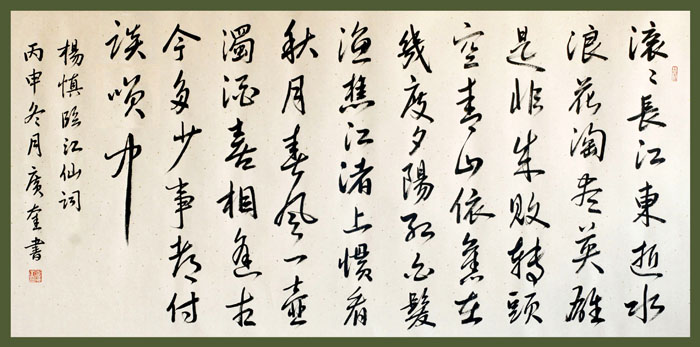 滚〻長江東逝水
浪花淘尽英雄
是非成敗轉頭
空青山依舊在
幾度夕陽红白髮
渔樵江渚上慣看
秋月春风一壶
濁酒喜相逢古
今多少事都付
談咲中
楊慎臨江仙词
丙申冬月廣奎書